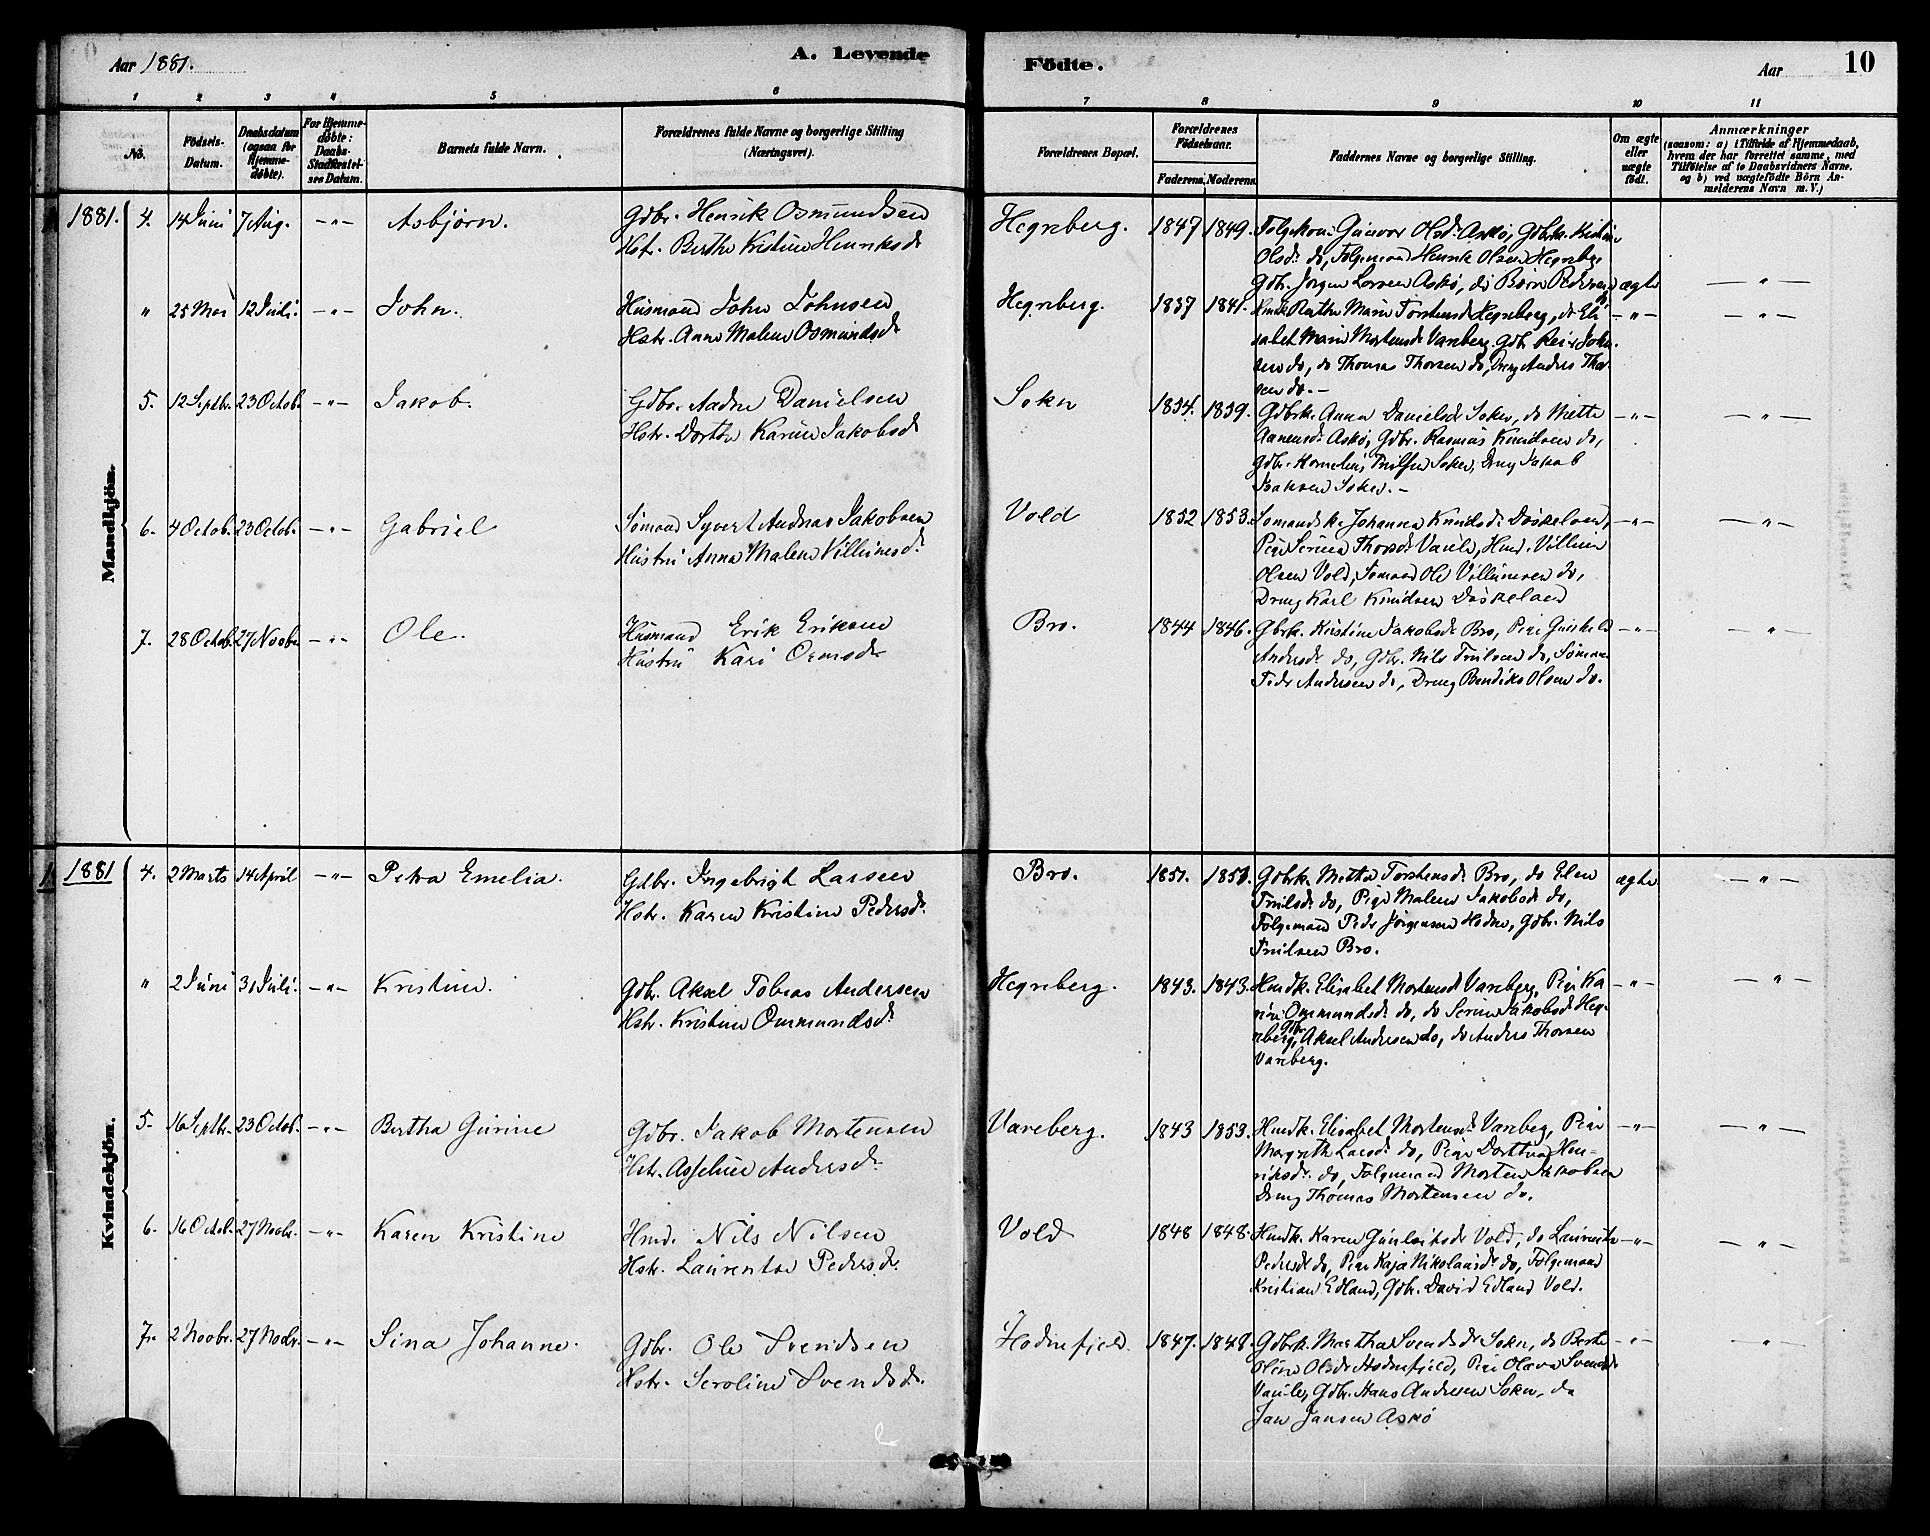 Aar 1881.
A. Levende
Födte.
Aar
10
1 2 3 4 5 6 7 8 9 10 11
No.
Födsels-Datum.
Daabsdatum (ogsaa for Hjemme-døbte).
For Hjemme-døbte: Daabs-Stadfæstel-ses Datum.
Barnets fulde Navn.
Forældrenes fulde Navne og borgerlige Stilling (Næringsvei).
Forældrenes Bopæl.
Forældrenes Fødselsaar.
Faderens. Moderens.
Faddernes Navne og borgerlige Stilling.
Om ægte eller uægte født.
Anmærkninger
(saasom: a) i Tilfælde af Hjemmedaab,
hvem der har forrettet samme, med
Tilföielse af to Daabsvidners Navne,
og b) ved uægtefödte Börn An-
melderens Navn m. V.)
Mandkjön.
1881. 4. 14 Juni 7 Aug. -"- Asbjörn.
Gdbr. Henrik Osmundsen
Hstr. Berthe Kristine Henriksd.
Hegreberg. 1847 1849.
Folgekone Gunvor Olsd. Askø, Gdbrk. Kristine
Olsd. do, Folgemand Henrik Olsen Hegreberg
Gdbr. Jørgen Larsen Askø, do Børn Pedersen
ægte -"-
" 25 Mai 12 Juli -"- John.
Husmand John Johnsen
Hstr. Anne Malene Osmundsd
Hegreberg. 1837 1841.
Hmdk Berthe Marie Torstensd Hegreberg, do Eli-
sabet Marie Mortensd Vareberg. Gdbr. Peier John-
sen do, do Thomas Thorsen do, Dreng Anders Thor-
sen do. -
-"- -"-
5. 12 Septbr. 23 Octob. -"- Jakob.
Gdbr. Aadne Danielsen
Hstr. Dorthe Karine Jakobsd
Sokn 1834. 1839.
Gdbrk. Anna Danielsd Sokn, do Mette
Aanensd. Askø, Gdbr. Rasmus Knudsen do,
Gdbr. Kornelius Truilsen Sokn, Dreng Jakob
Isaksen Sokn. -
-"- -"-
6. 4 Octob. 23 Octob. -"- Gabriel
Sømand Syvert Andreas Jakobsen
Hustru Anna Malene Villumsd.
Vold 1852 1853.
Sømandsk. Johanna Knudsd.
Pige Serina Thorsd. Vaule, Hmd. Villum
Olsen Vold, Sømand Ole Villumsen do,
Dreng Karl Knudsen
-"- -"-
7. 28 Octob. 27 Novbr. -"- Ole.
Husmand Erik Eriksen
Hustru Kari Ormsd.
Bro. 1844 1846.
Gbrk. Kirstine Jakobsd. Bro, Pige Gunhild
Andersd. do, Gdbr. Nils Truilsen do, Sømand
Peder Andersen do, Dreng Bendiks Olsen do.
-"- -"-
Kvindekjön.
1881 4. 2 Marts 14 April -"- Petra Emelia.
Gdbr. Ingebrigt Larsen
Hstr. Karen Kristine Pedersd.
Bro. 1851. 1853.
Gdbrk. Mette Torstensd. Bro, do Elen
Truilsd. do, Pige Malene Jakobsd. do,
Folgemand Peder Jørgensen Hodne, Gdbr. Nils
Truilsen Bro.
ægte. -"-
" 2 Juni 31 Juli. -"- Kristine.
Gdbr. Aksel Tobias Andersen
Hstr. Kristine Ommundsd.
Hegreberg. 1843. 1843.
Hmdk. Elisabet Mortensd Vareberg, Pige Ka-
rine Ommundsd. do, do Serine Jakobsd. Heg-
reberg, Gdbr. Aksel Andersen do, do Anders Thorsen
Vareberg.
-"- -"-
5. 16 Septbr. 23 Octob. -"- Bertha Gurine
Gdbr. Jakob Mortensen
Hstr. Asseline Andersd.
Vareberg. 1843 1853.
Hmdk. Elisabet Mortensd. Vareberg, Pige
Margrethe Larsd. do, Pige Dorthea Hen-
riksd. do, Folgemand Morten Jakobsen
Dreng Thomas Mortensen do.
-"- -"-
6. 16 Octob. 27 Novbr. -"- Karen Kristine
Hmd. Nils Nilsen
Hstr. Laurentse Pedersd.
Vold 1848 1848.
Hmdk. Karen Gunleiksd. Vold, do Laurentse
Pedersd. do, Pige Kaja Nikolaisd. do, Folgemand
Kristian Edland, Gdbr. David Edland Vold.
-"- -"-
7. 2 Novbr. 27 Novbr. -"- Sina Johanne.
Gdbr. Ole Svendsen
Hstr. Seroline Svendsd.
Hodnefjeld. 1847. 1848.
Gdbrk. Martha Svendsd. Sokn, do Berte
Oline Olsd. Hodnefjeld, Pige Olava Svendsd
Vaule, Gdbr. Hans Andresen Sokn, do
Jan Jansen Askø
-"- -"-